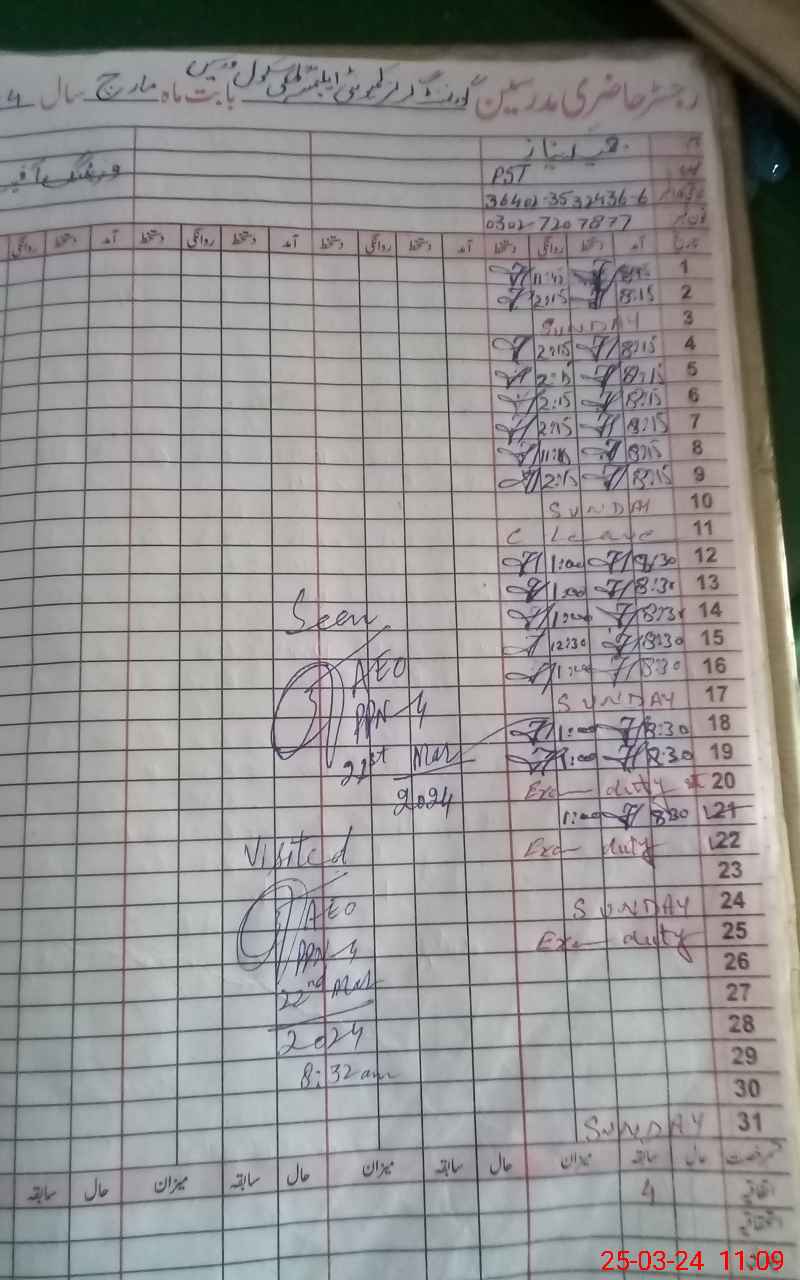 رجسٹر حاضری مدرسین گورنمنٹ گرلز کمیونٹی ایلیمنٹری سکول بابت ماہ مارچ سال
PST
36402-3532436-6
0302-7207877
آمد دستخط روانگی دستخط آمد دستخط روانگی دستخط آمد دستخط روانگی دستخط آمد دستخط روانگی
1 11:45
2 8:15 2:15
3 SUNDAY
4 8:15 2:15
5 8:15 2:15
6 8:15 2:15
7 8:15 2:15
8 8:15
9 8:15 2:15
10 SUNDAY
11 C Leave
12 8:30 1:00
13 8:30 1:00
14 8:30 1:00
15 8:30 12:30
16 8:30 1:00
17 SUNDAY
18 8:30 1:00
19 8:30 1:00
20 Exa duty
21 8:30 1:00
22 Exa duty
23
24 SUNDAY
25 Exa duty
26
27
28
29
30
31 SUNDAY
Seen
AEO
PPN-4
21st Mar
2024
Visited
AEO
PPN-4
22nd Mar
2024
8:32 am
حال سابقہ میزان حال سابقہ میزان حال سابقہ میزان حال سابقہ
اتفاقیہ 4
25-03-24 11:09